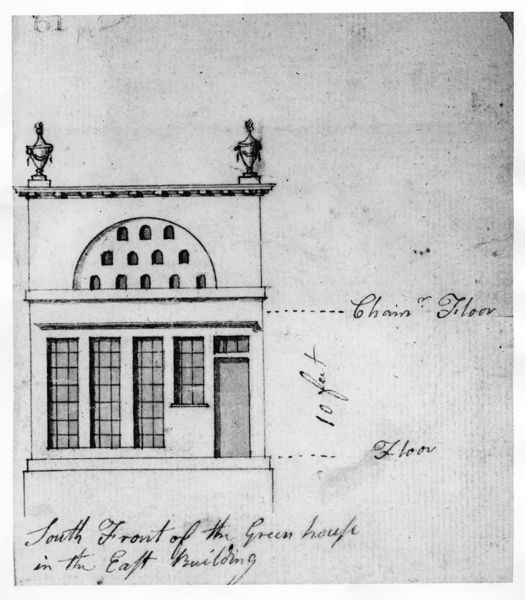 61
Chamr. Floor
10 feet
Floor
South Front of the Green house
in the East Building